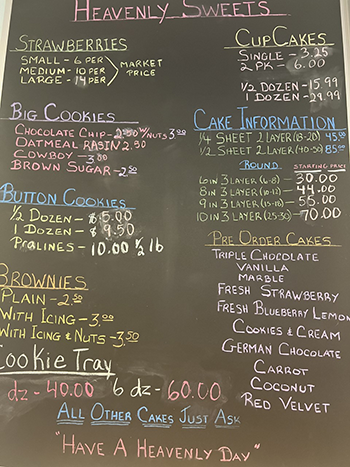 HEAVENLY SWEETS
STRAWBERRIES
SMALL - 6 PER
MEDIUM - 10 PER
LARGE - 14 PER
MARKET
PRICE
BIG COOKIES
CHOCOLATE CHIP - 2.50 W/NUTS 3.00
OATMEAL RASIN 2.50
COWBOY - 3.00
BROWN SUGAR - 2.50
BUTTON COOKIES
1/2 DOZEN - $5.00
1 DOZEN - $9.50
PRALINES - 10.00 1/2 lb
BROWNIES
PLAIN - 2.50
WITH ICING - 3.00
WITH ICING & NUTS - 3.50
COOKIE TRAY
dz - 40.00 6 dz - 60.00
CUPCAKES
SINGLE - 3.25
2 PK - 6.00
1/2 DOZEN - 15.99
1 DOZEN - 29.99
CAKE INFORMATION
1/4 SHEET 2 LAYER (18-20) 45.00
1/2 SHEET 2 LAYER (40-50) 85.00
ROUND STARTING PRICE
6 IN 3 LAYER (6-8) 30.00
8 IN 3 LAYER (10-12) - 44.00
9 IN 3 LAYER (15-18) - 55.00
10 IN 3 LAYER (25-30) - 70.00
PRE ORDER CAKES
TRIPLE CHOCOLATE
VANILLA
MARBLE
FRESH STRAWBERRY
FRESH BLUEBERRY LEMON
COOKIES & CREAM
GERMAN CHOCOLATE
CARROT
COCONUT
RED VELVET
ALL OTHER CAKES JUST ASK
"HAVE A HEAVENLY DAY"